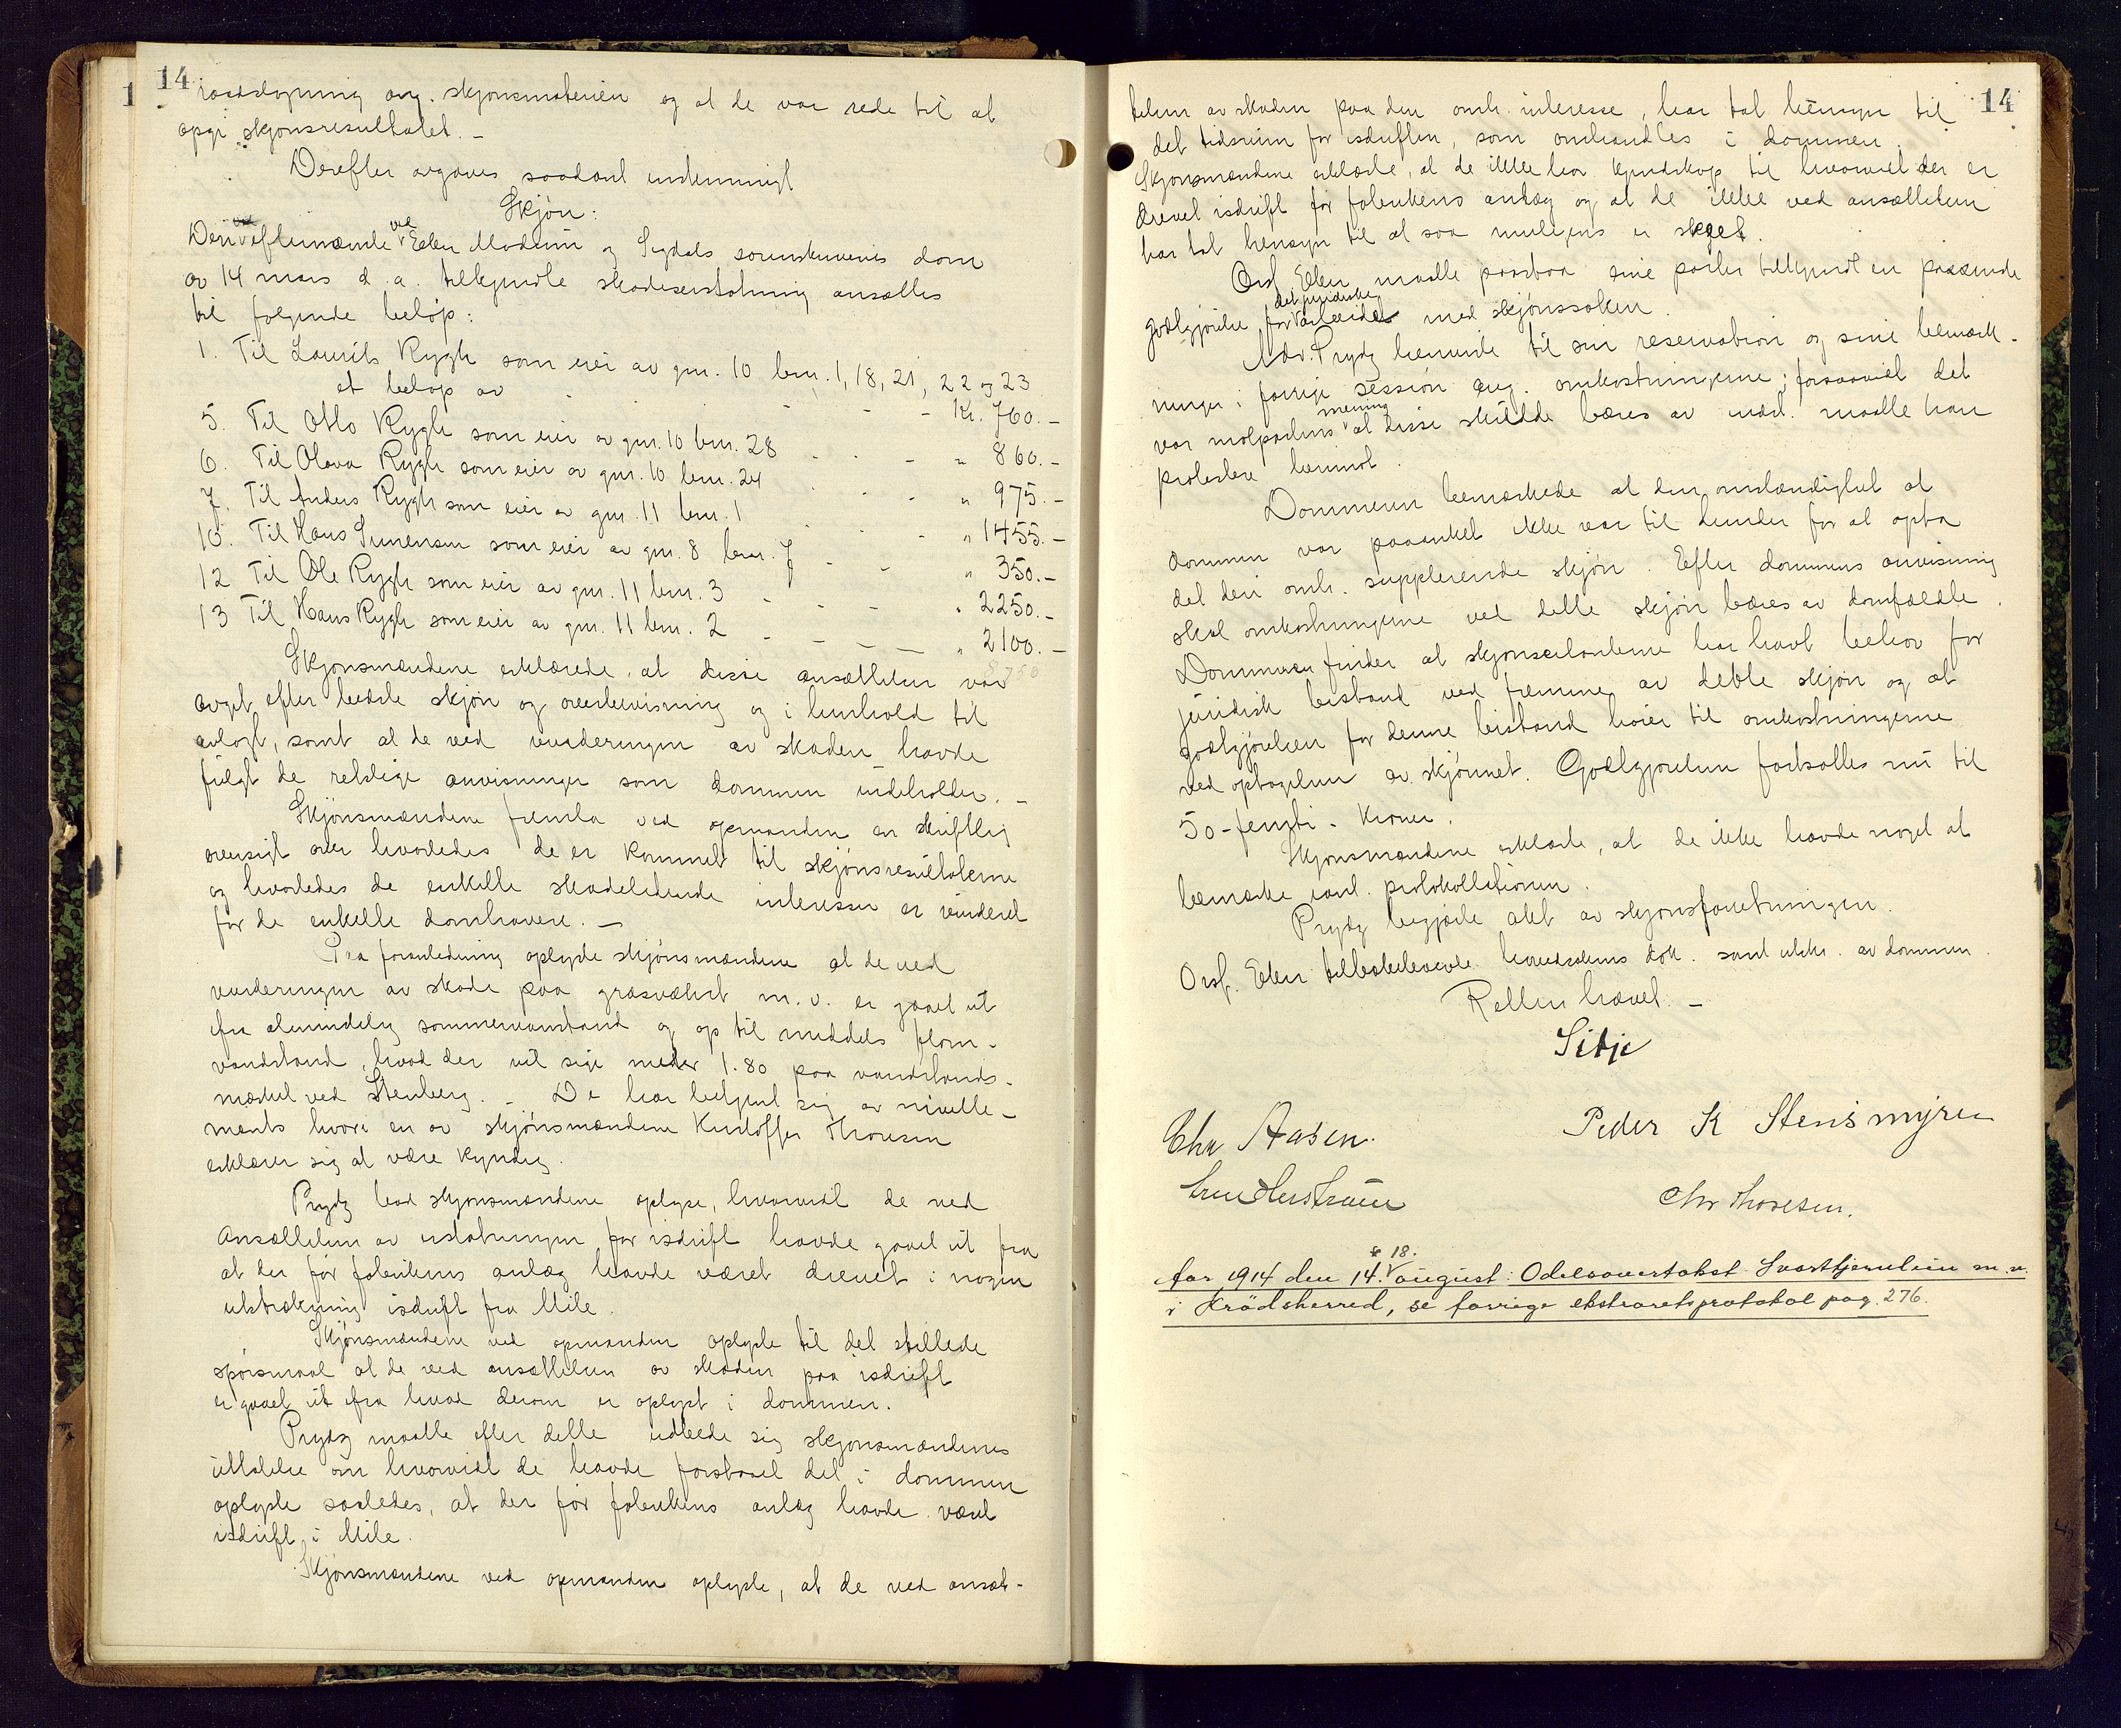 14
raadslagning ang. skjønsmaterien og at de var rede til at
opgi skjønsresultatet. -
Derefter avgaves saadant enstemmigt
Skjøn:
Den efternævnte ved Eker Modum og Sigdals sorenskriveris dom
av 14 mars d. a. tilkjendte skadeserstatning ansættes
til følgende beløp:
1. Til Laurits Rygh som eier av gnr. 10 brn. 1, 18, 21, 22 og 23
et beløp av - - - Kr. 760.-
5. Til Otto Rygh som eier av gnr. 10 brn. 28 - - - " 860.-
6. Til Olava Rygh som eier av gnr. 10 brn. 24 - - - " 975.-
7. Til Anders Rygh som eier av gnr. 11 brn. 1 - - - " 1455.-
10. Til Hans Simensen som eier av gnr. 8 brn. 7 - - " 350.-
12 Til Ole Rygh som eier av gnr. 11 brn. 3 - - - " 2250.-
13 Til Hans Rygh som eier av gnr. 11 brn. 2 - - - " 2100.-
8750
Skjønsmændene erklærede, at disse ansættelser var
avgit efter bedste skjøn og overbevisning og i henhold til
avlagt, samt at de ved vurderingen av skaden havde
fulgt de retslige anvisninger som dommen indeholder. -
Skjønsmændene fremla ved opmanden en skriftlig
oversigt over hvorledes de er kommet til skjønsresultaterne
og hvorledes de enkelte skadelidende interesser er vurderet
for de enkelte domhavere. -
Paa foranledning oplyste skjønsmændene at de ved
vurderingen av skade paa græsvækst m. v. er gaaet ut
fra almindelig sommervandstand og op til middels flom-
vandstand, hvad der vil sige meter 1.80 paa vandstands-
merket ved Stenberg. - De har betjent sig av nivelle-
ments hvori en av skjønsmændene Kristoffer Thoresen
erklærer sig at være kyndig.
Prydz bad skjønsmændene oplyse, hvorvidt de ved
ansættelsen av erstatningen for isdrift havde gaaet ut fra
at der før fabrikens anlæg havde været drevet i nogen
utstrækning isdrift fra Mile.
Skjønsmændene ved opmanden oplyste til det stillede
spørsmaal at de ved ansættelsen av skaden paa isdrift
er gaaet ut fra hvad derom er oplyst i dommen.
Prydz maatte efter dette utbede sig skjønsmændenes
uttalelse om hvorvidt de havde forstaaet det i dommen
oplyste saaledes, at der før fabrikens anlæg havde været
isdrift i Mile.
Skjønsmændene ved opmanden oplyste, at de ved ansæt-
14
telsen av skaden paa den omh. interesse, har tat hensyn til
det tidsrum for isdriften, som omhandles i dommen.
Skjønsmændene erklærte, at de ikke har kjendskap til hvorvidt der er
drevet isdrift før fabrikens anlæg og at de ikke ved ansættelsen
har tat hensyn til at saa muligens er skeet.
Orsf. Eden maatte paastaa sine parter tilkjendt en passende
godtgjørelse for det juridiske arbeide med skjønssaken.
Adv. Prydz henviste til sin reservation og sine bemærk-
ninger i forrige session ang. omkostningerne; forsaavidt det
var motpartens mening at disse skulde bæres av indst. maatte han
protestere herimot.
Dommeren bemærkede at den omstændighet at
dommen var paaanket ikke var til hinder for at opta
det den omh. supplerende skjøn. Efter dommens anvisning
skal omkostningerne ved dette skjøn bæres av domfældte.
Dommeren finder at skjønserlanterne har havt behov for
juridisk bistand ved fremme av dette skjøn og at
godtgjørelsen for denne bistand hører til omkostningerne
ved optagelsen av skjønnet. Godtgjørelsen fastsattes nu til
50 - femti - kroner.
Skjønsmændene erklærte, at de ikke havde noget at
bemærke ianl. protokollationen.
Prydz begjærte akt av skjønsforretningen.
Orsf. Eden tilbakeleverte hovedsakens dok. samt utskr. av dommen.
Retten hævet. -
Sitje
Chr Aasen.
Peder K Stensmyren
Chr Thoresen.
& 18.
Aar 1914 den 14. august: Odelsovertakst Svarttjernlien m. v.
i Krödsherred, se forrige ekstraretsprotokol pag. 276.